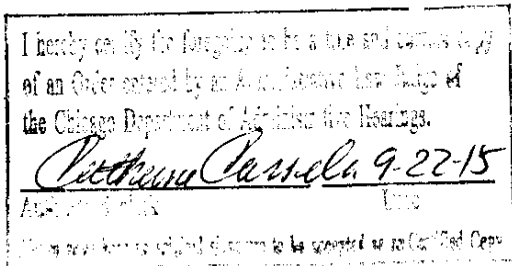 I hereby certify the foregoing to be a true and correct copy
of an Order entered by an Administrative Law Judge of
the Chicago Department of Administrative Hearings.
9-22-15
Authorized Clerk Date
Above must bear an original signature to be accepted as an Certified Copy